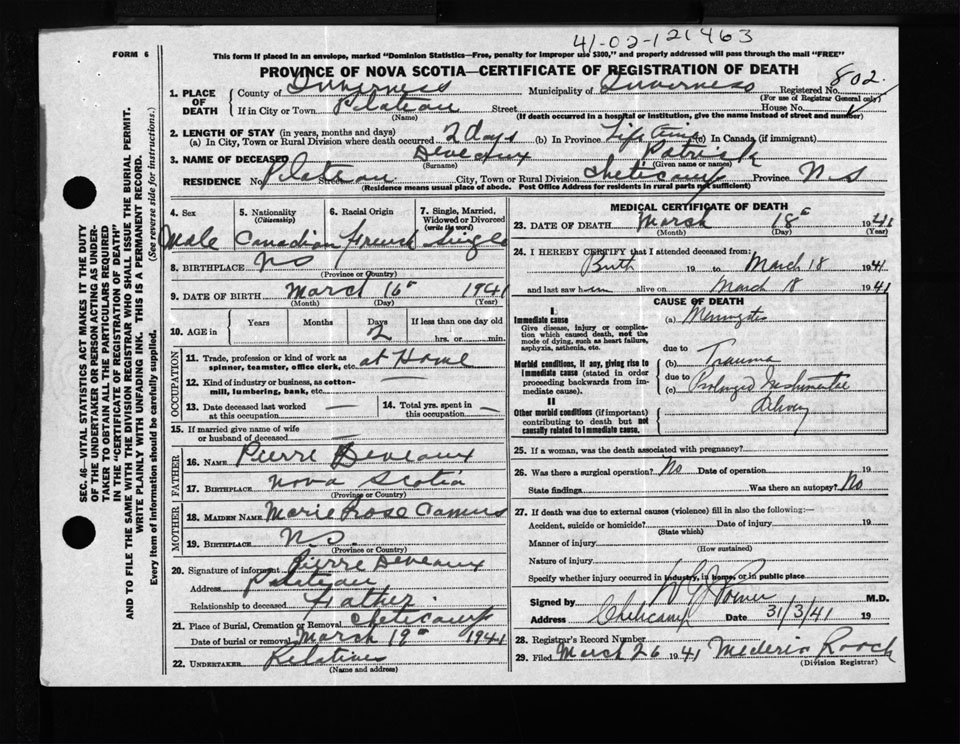 41-02-121463
FORM 6
This form if placed in an envelope, marked "Dominion Statistics—Free, penalty for improper use $300," and properly addressed will pass through the mail "FREE"
PROVINCE OF NOVA SCOTIA—CERTIFICATE OF REGISTRATION OF DEATH
1. PLACE OF DEATH County of Inverness Municipality of Inverness Registered No. 802
(For use of Registrar General only)
If in City or Town Plateau Street House No.
(Name) (If death occurred in a hospital or institution, give the name instead of street and number)
2. LENGTH OF STAY (in years, months and days)
(a) In City, Town or Rural Division where death occurred 2 days (b) In Province Life Time (c) In Canada (if immigrant)
3. NAME OF DECEASED Deveaux Patrick
(Surname) (Given name or names)
RESIDENCE No. Plateau Street City, Town or Rural Division Cheticamp Province N-S
(Residence means usual place of abode. Post Office Address for residents in rural parts not sufficient)
SEC. 46—VITAL STATISTICS ACT MAKES IT THE DUTY
OF THE UNDERTAKER OR PERSON ACTING AS UNDER-
TAKER TO OBTAIN ALL THE PARTICULARS REQUIRED
IN THE "CERTIFICATE OF REGISTRATION OF DEATH"
AND TO FILE THE SAME WITH THE DIVISION REGISTRAR WHO SHALL ISSUE THE BURIAL PERMIT.
WRITE PLAINLY WITH UNFADING INK. THIS IS A PERMANENT RECORD.
Every item of information should be carefully supplied. (See reverse side for instructions.)
4. Sex 5. Nationality (Citizenship) 6. Racial Origin 7. Single, Married, Widowed or Divorced (write the word)
Male Canadian French Single
8. BIRTHPLACE NS
(Province or Country)
9. DATE OF BIRTH March 16th 1941
(Month) (Day) (Year)
10. AGE in Years Months Days If less than one day old
2 hrs. or min.
OCCUPATION
11. Trade, profession or kind of work as spinner, teamster, office clerk, etc. at Home
12. Kind of industry or business, as cotton-mill, lumbering, bank, etc. —
13. Date deceased last worked at this occupation — 14. Total yrs. spent in this occupation —
15. If married give name of wife or husband of deceased —
FATHER
16. NAME Pierre Deveaux
17. BIRTHPLACE Nova Scotia
(Province or Country)
MOTHER
18. MAIDEN NAME Marie Rose Camus
19. BIRTHPLACE N.S.
(Province or Country)
20. Signature of informant Pierre Deveaux
Address Plateau
Relationship to deceased Father
21. Place of Burial, Cremation or Removal Cheticamp
Date of burial or removal March 19th 1941
22. UNDERTAKER Relatives
(Name and address)
MEDICAL CERTIFICATE OF DEATH
23. DATE OF DEATH March 18th 1941
(Month) (Day) (Year)
24. I HEREBY CERTIFY that I attended deceased from:
Birth 19 to March 18 1941
and last saw him alive on March 18 1941
CAUSE OF DEATH
I
Immediate cause
Give disease, injury or complication which caused death, not the mode of dying, such as heart failure, asphyxia, asthenia, etc.
(a) Meningitis
due to
Morbid conditions, if any, giving rise to immediate cause (stated in order proceeding backwards from immediate cause).
(b) Trauma
due to
(c) Prolonged Instrumental
Delivery
II
Other morbid conditions (if important) contributing to death but not causally related to immediate cause.
25. If a woman, was the death associated with pregnancy?
26. Was there a surgical operation? No Date of operation 19
State findings Was there an autopsy? No
27. If death was due to external causes (violence) fill in also the following:—
Accident, suicide or homicide? Date of injury 19
(State which)
Manner of injury
(How sustained)
Nature of injury
Specify whether injury occurred in industry, in home, or in public place
Signed by M.D.
Address Cheticamp Date 31/3/41 19
28. Registrar's Record Number
29. Filed March 26 1941 Mederic Roach
(Division Registrar)